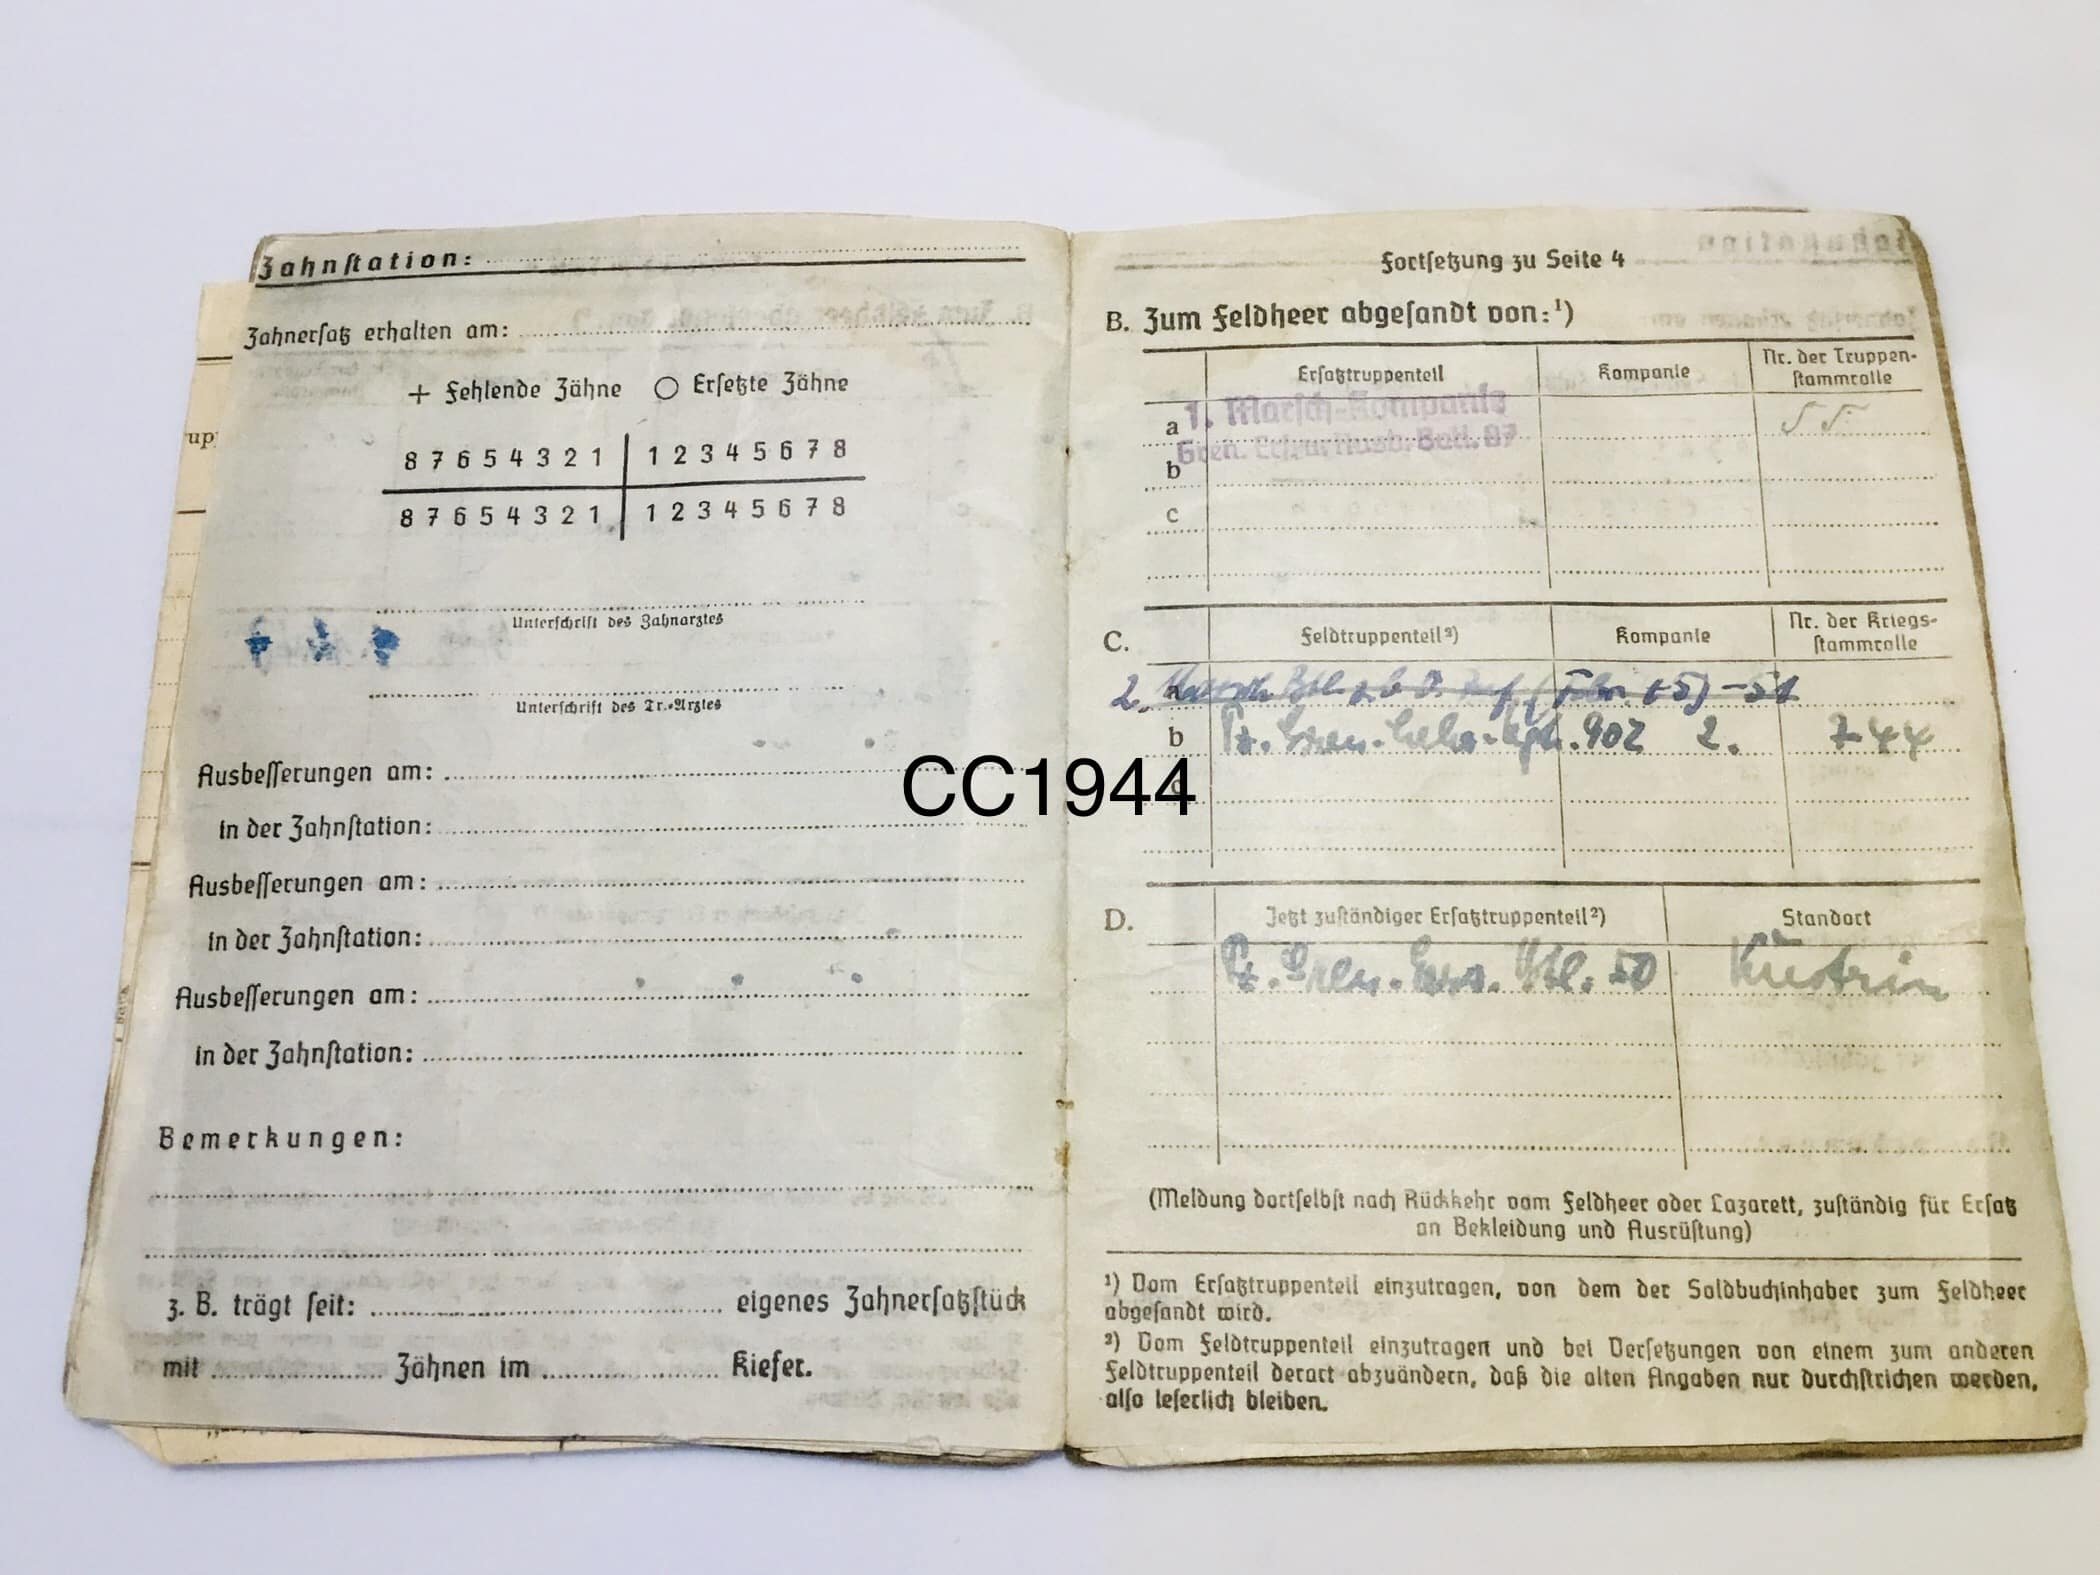 Zahnstation:
Zahnersatz erhalten am:
+ Fehlende Zähne ○ Ersetzte Zähne
8 7 6 5 4 3 2 1 | 1 2 3 4 5 6 7 8
8 7 6 5 4 3 2 1 | 1 2 3 4 5 6 7 8
Unterschrift des Zahnarztes
Unterschrift des Tr.-Arztes
Ausbesserungen am:
in der Zahnstation:
Ausbesserungen am:
in der Zahnstation:
Ausbesserungen am:
in der Zahnstation:
Bemerkungen:
z. B. trägt seit: eigenes Zahnersatzstück
mit Zähnen im Kiefer.
CC1944
Fortsetzung zu Seite 4
B. Zum Feldheer abgesandt von:¹)
Ersatztruppenteil Kompanie Nr. der Truppen-
stammrolle
a 1. Marsch-Kompanie
Gren. Batl. 87
b
c
C. Feldtruppenteil²) Kompanie Nr. der Kriegs-
stammrolle
2.
b Pz. Gren. Lehr-Rgt. 902 2. 744
D. Jetzt zuständiger Ersatztruppenteil²) Standort
Pz. Gren. Ers. Btl. 50 Küstrin
(Meldung dortselbst nach Rückkehr vom Feldheer oder Lazarett, zuständig für Ersatz
an Bekleidung und Ausrüstung)
¹) Vom Ersatztruppenteil einzutragen, von dem der Soldbuchinhaber zum Feldheer
abgesandt wird.
²) Vom Feldtruppenteil einzutragen und bei Versetzungen von einem zum anderen
Feldtruppenteil derart abzuändern, daß die alten Angaben nur durchstrichen werden,
also leserlich bleiben.